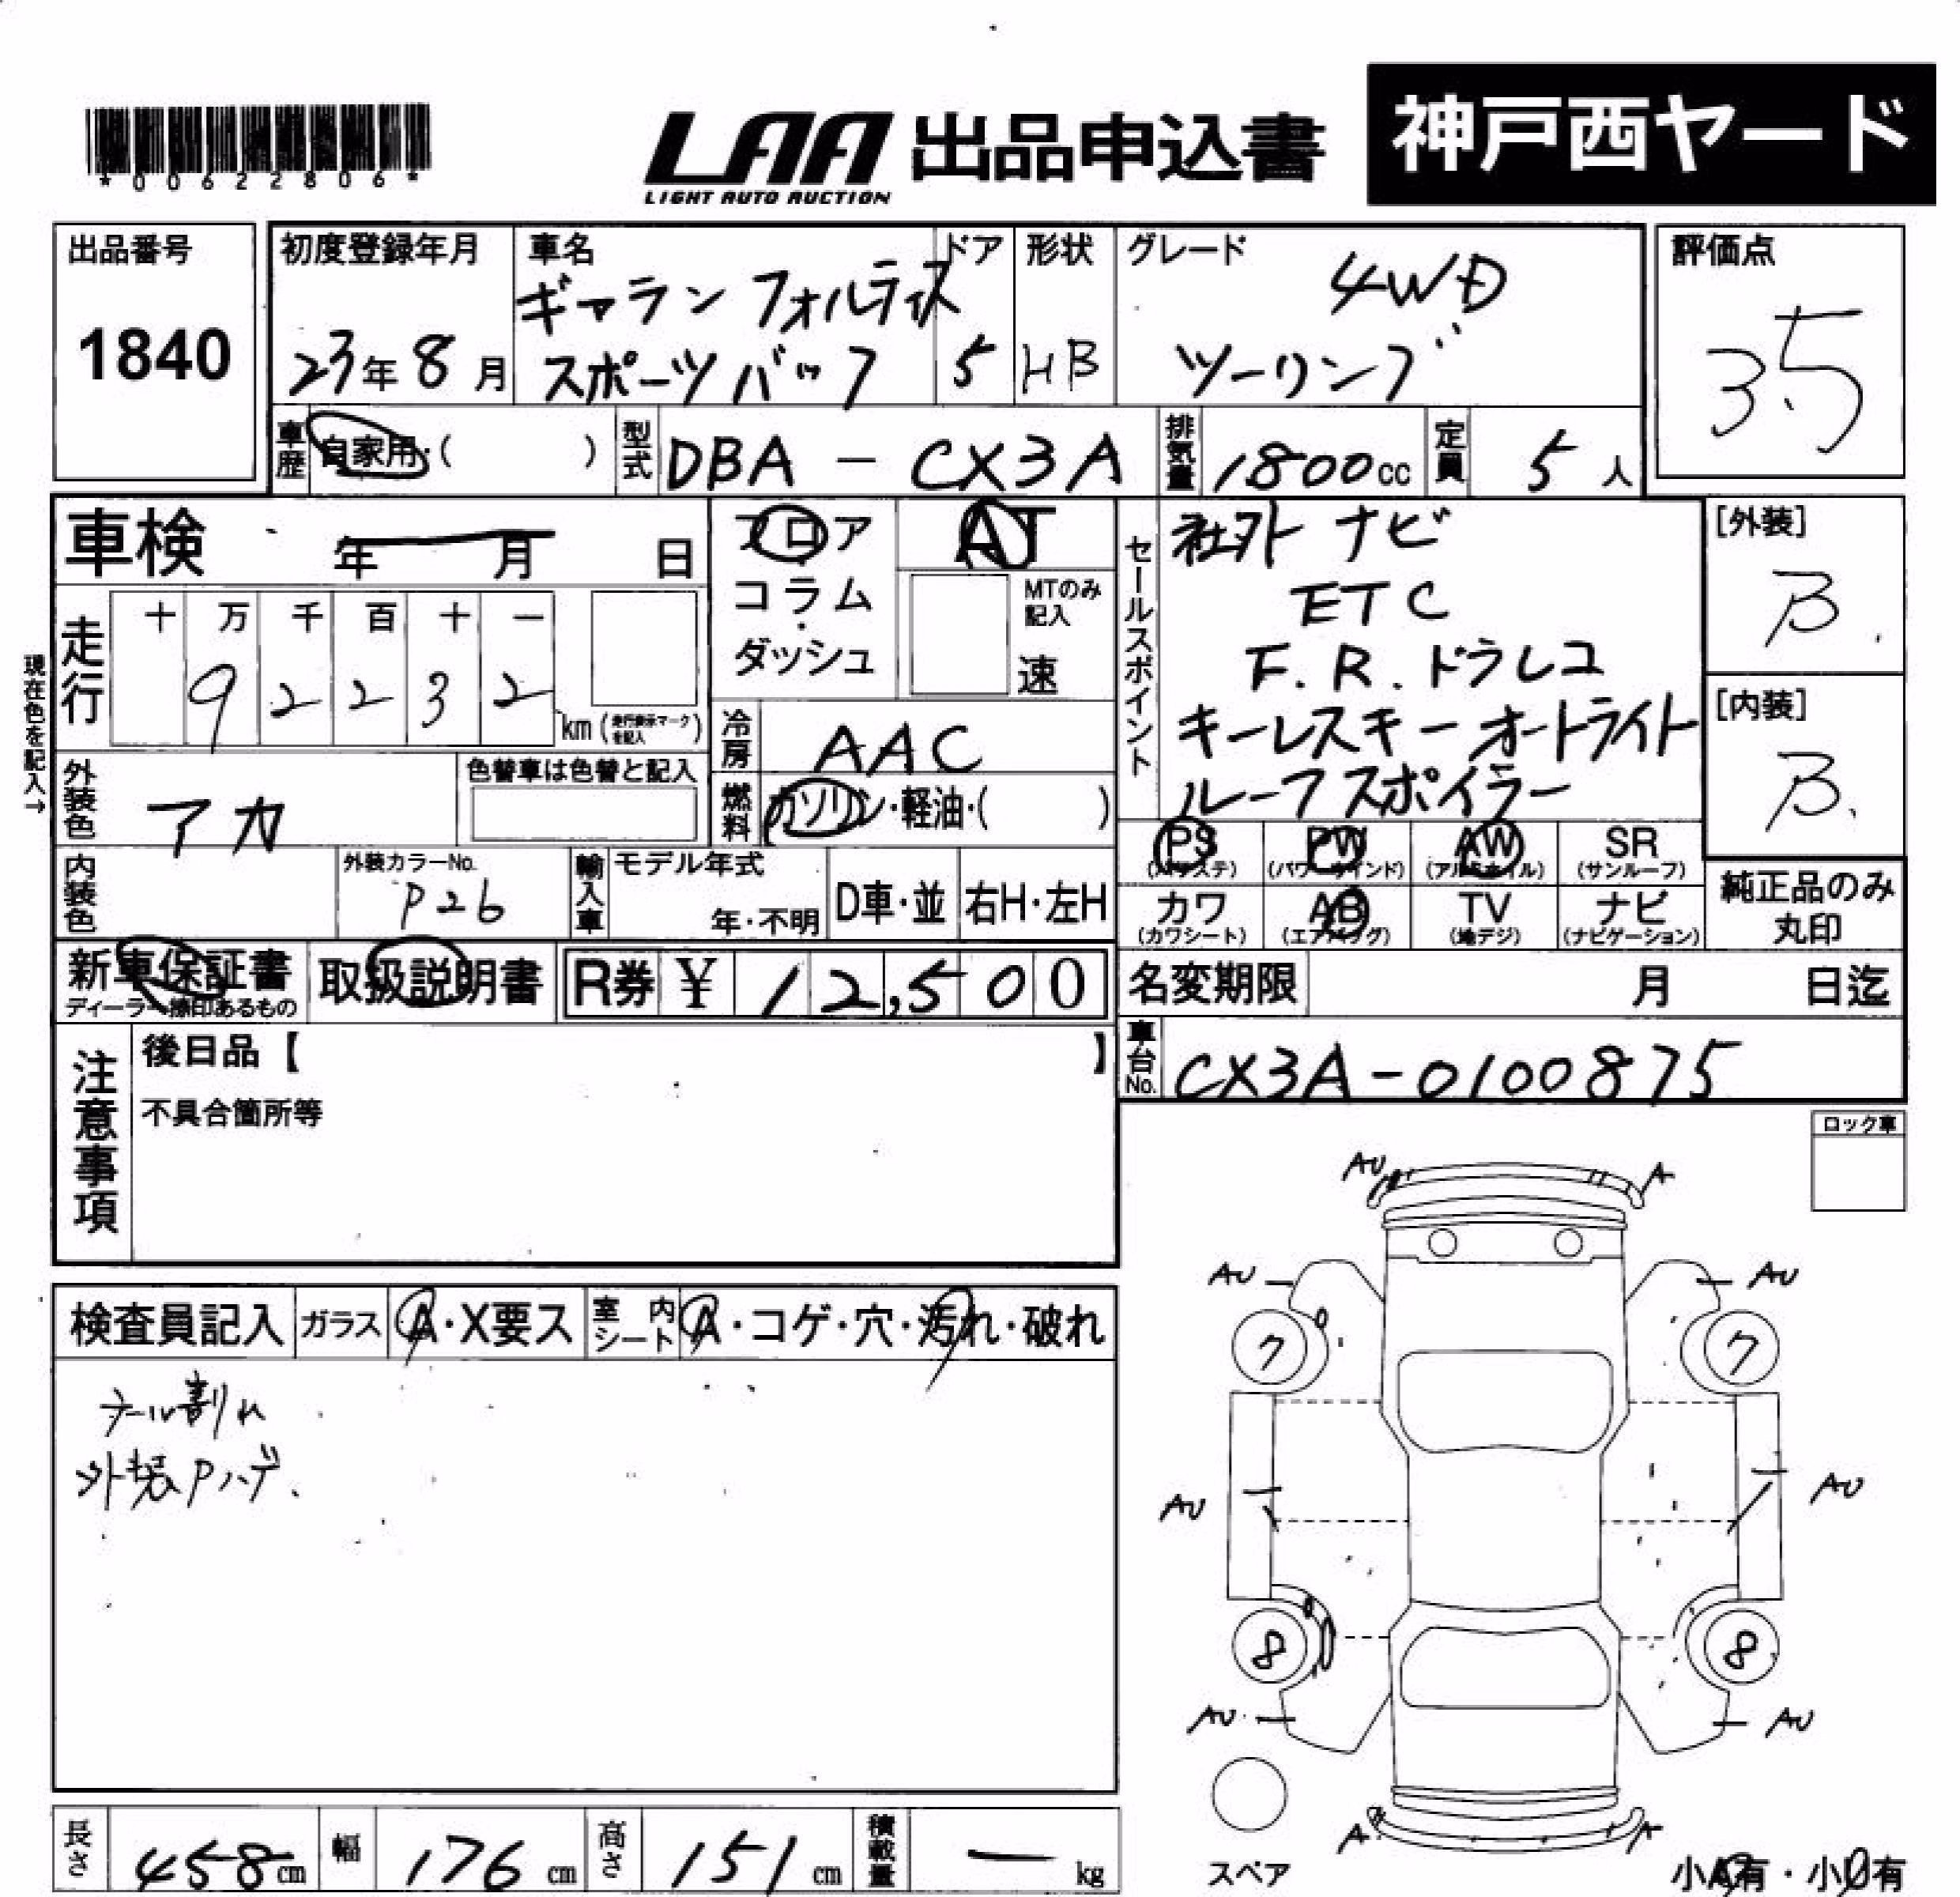 *00622806*
LAA 出品申込書
LIGHT AUTO AUCTION
神戸西ヤード
出品番号
1840
初度登録年月
23年8月
車名
ギャランフォルティス
スポーツバック
ドア
5
形状
HB
グレード
4WD
ツーリング
評価点
3.5
車歴
自家用・( )
型式
DBA-CX3A
排気量
1800cc
定員
5人
車検 年 月 日
フロア
コラム
・
ダッシュ
AT
MTのみ
記入
速
セールスポイント
社外ナビ
ETC
F.R.ドラレコ
キーレスキー オートライト
ルーフスポイラー
[外装]
B.
[内装]
B.
現在色を記入→
走行
十 万 千 百 十 一
9 2 2 3 2
km(走行表示マークを記入)
冷房
AAC
外装色
アカ
色替車は色替と記入
燃料
ガソリン・軽油・( )
内装色
外装カラーNo.
P26
輸入車
モデル年式
年・不明
D車・並
右H・左H
PS
(パワステ)
PW
(パワーウインド)
AW
(アルミホイル)
SR
(サンルーフ)
カワ
(カワシート)
AB
(エアバッグ)
TV
(地デジ)
ナビ
(ナビゲーション)
純正品のみ
丸印
新車保証書
ディーラー捺印あるもの
取扱説明書
R券 ¥ 12,500
名変期限 月 日迄
車台No.
CX3A-0100875
注意事項
後日品【 】
不具合箇所等
ロック車
検査員記入
ガラス
A・X要ス
室内シート
A・コゲ・穴・汚れ・破れ
テール割れ
外装Pハゲ.
AU A
AU AU
7 7
AU AU
8 8
AU AU
A A
スペア
小A有・小U有
長さ
458cm
幅
176cm
高さ
151cm
積載量
— kg